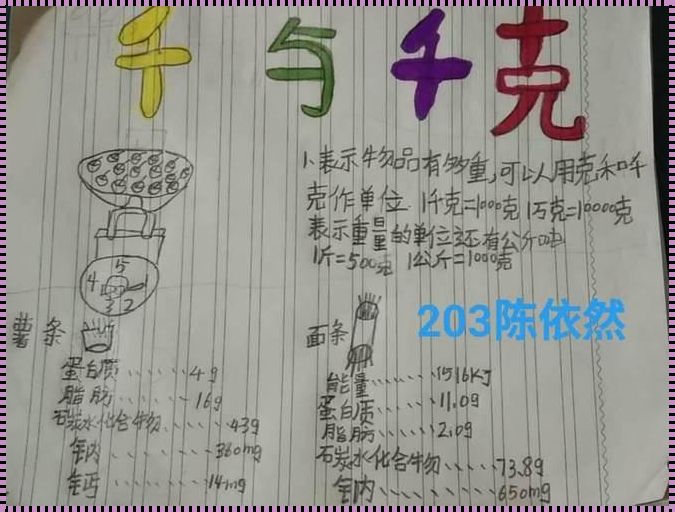 千与千克
1、表示物品有多重,可以用克和千
克作单位. 1千克=1000克 1万克=10000克
表示重量的单位还有公斤吨
1斤=500克 1公斤=1000克
5
4 1
3 2
203陈依然
薯条
蛋白质......4g
脂肪......16g
石炭水化合物......43g
钠......360mg
钙......14mg
面条
能量......1516KJ
蛋白质......11.0g
脂肪......2.0g
石炭水化合物.....73.8g
钠........650mg